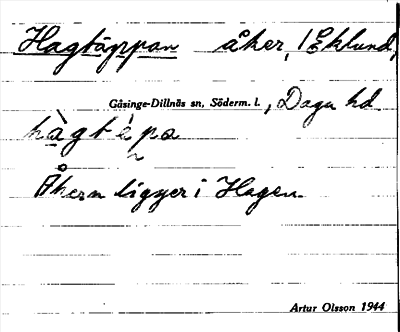 Hagtäppan åker, 1 Eklund,
Gåsinge-Dillnäs sn, Söderm. l., Daga hd
hàgtèpa
Åkern ligger i Hagen.
Artur Olsson 1944